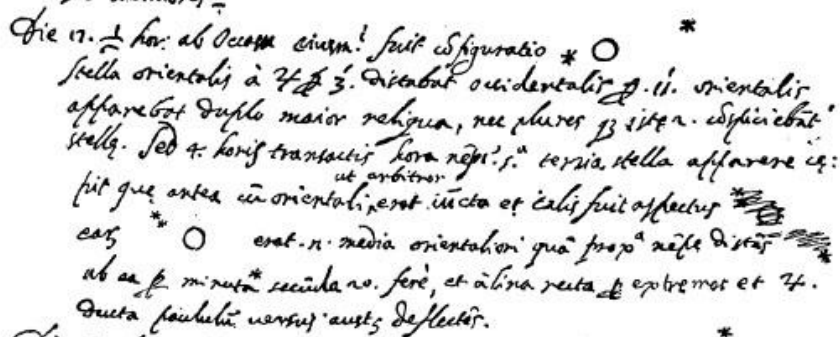 Die 17. ½ hor: ab Occasu eiusm.i fuit cōfiguratio
stella orientalis à ♃ p 3'. distabat occidentalis p. 11'. orientalis
apparebat duplo maior reliqua, nec plures q3 iste 2. cōspiciebāt.r
stellę. Sed 4. horis transactis hora nępe. 5.a tertia stella apparere cę:
pit quę antea cū orientali, ut arbitror erat iūcta et talis fuit aspectus
earũ erat .n. media orientaliori quā prox.a nępe distās
ab ea p minuta secūda 20. ferè, et à līnea recta p extremos et ♃.
ducta paululū versus austrũ deflectēs.